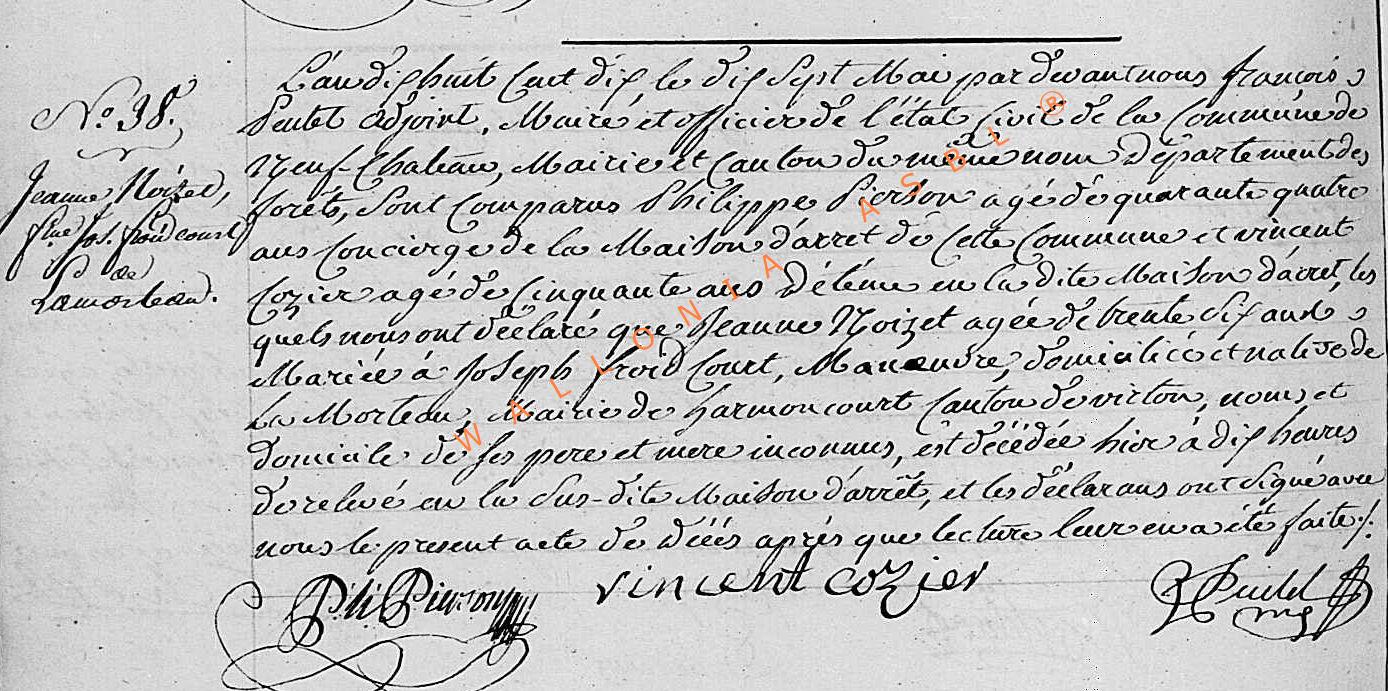 N.° 38.
Jeanne Noizet,
f.me Jos. froidcourt
de
Lamorteau.
L'an dix huit Cent dix, le dix Sept Mai par devant nous françois
Adjoint, Maire et officier de l'état Civil de la Commune de
Neuf-Chateau, Mairie et Canton du même nom Département des
forêts, Sont Comparus Philippe Pierson agé de quarante quatre
ans Concierge de la Maison d'arret de Cette Commune et vincent
Cozier agé de Cinquante ans Détenu en la dite Maison d'arret, les
quels nous ont déclaré que Jeanne Noizet agée de trente Six ans
Mariée à Joseph froid Court, Manœuvre, domiciliée et native de
La Morteau, Mairie de harnoncourt Canton de virton, noms et
domicile de ses pere et mere inconnus, est décédée hier à dix heures
de relevé en la Sus-dite Maison d'arrêt, et les déclarans ont Signé avec
nous le present acte de Décés après que lecture leur en a été faite ./.
Ph: Pierson
vincent cozier
WALLONIA ASBL ®